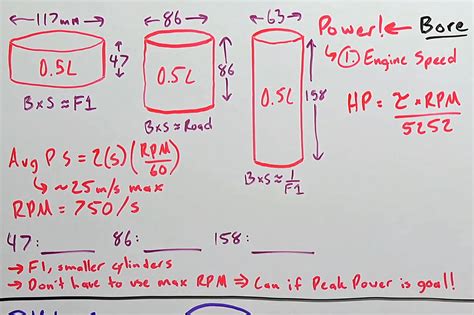 ←117mm→ ←86→ ←63→ Power! ← Bore
↳ ① Engine Speed
0.5L 47 0.5L 86 0.5L 158
HP = τ*RPM
5252
BxS≈F1 BxS≈Road BxS≈ 1/F1
Avg PS = 2(S)(RPM/60)
↳ ~25m/s max
RPM = 750/S
47: ____ 86: ____ 158: ____
→ F1, smaller cylinders
→ Don't have to use max RPM ⇒ Can if Peak Power is goal!